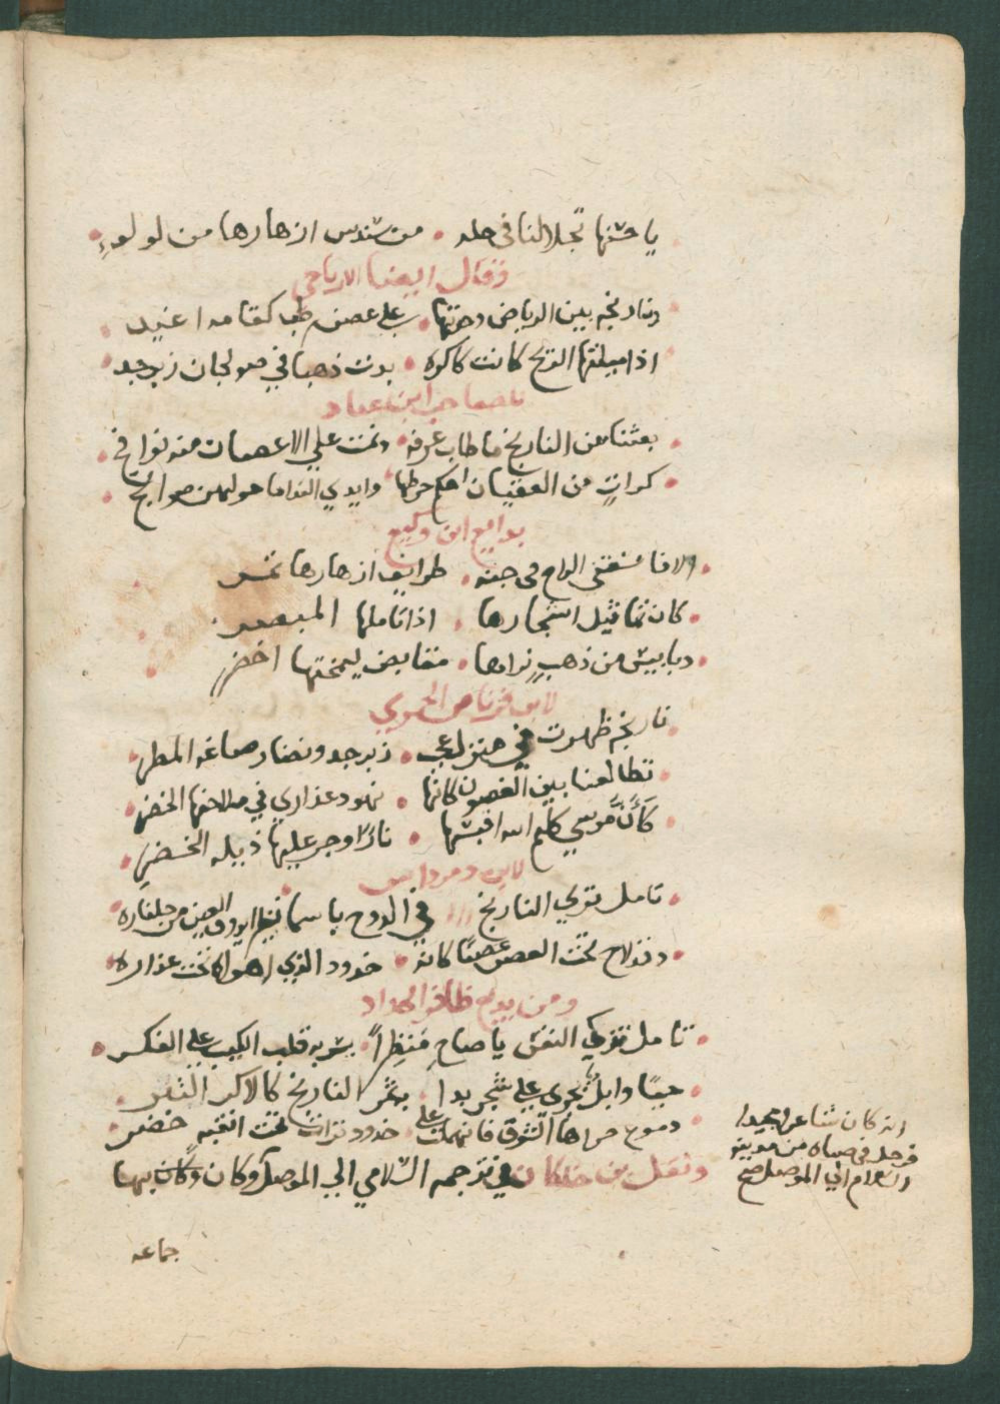 يا حسنها تجلا لنا في حلد • من سندس ازهارها من لو لوء
وقال ايضا الارجاني
ونارنجه بين الرياض • على غصن رطب كقامه اغيد
اذا ميلتها الريح كانت كاكرة • بدت ذهبا في صولجان زبرجد
للصاحب ابن عباد
بعثنا من النارنج ما طاب عرفه • ونمت على الاغصان منه نوافج
كراتٍ من العقيان احكم خرطها • وايدي النداما حولهن صوالج
بوابع ابن وكيع
والافا سقني الراح في جنه • طرايف ازهارها تثمر
كان تماثيل اشجارها • اذا تاملها المبصر
دبابيس من ذهبٍ نوامها • مقابض ليمختها اخضر
لابن قرناص الحموي
نارنجه ظهرت في عجب • زبرجد ونضار صاغه المطر
تطالعنا بين الغصون كانها • نهود عذاري في ملاحفها الخضر
كَأَنَّ موسي كليم الله اقبسها • نارًا وجر عليها ذيله الخضر
لابن دمرداس
تامل تري النارنج في الدوح يا سما
وقد لاح تحت الغصن غصنًا كانه • خدود الذي اهوا كانت عذاره
ومن بديع ظافر الحداد
تامل تري النقش يا صاح منظرًا • يسر به قلب الكيب على الفكر
حيًا وابل يجري على شجر بدا • بثمر النارنج كالاكر التبر
دموع حداها الشوق فانهملت على • خدود تراات تحت انقبه خضر
ونقل بن خلكان في ترجمه السلامي الى الموصل وكان وكان بها
انه كان شاعرا مجيدا
فرحل في صباه من مدينه
السلام الي الموصل صح
جماعه